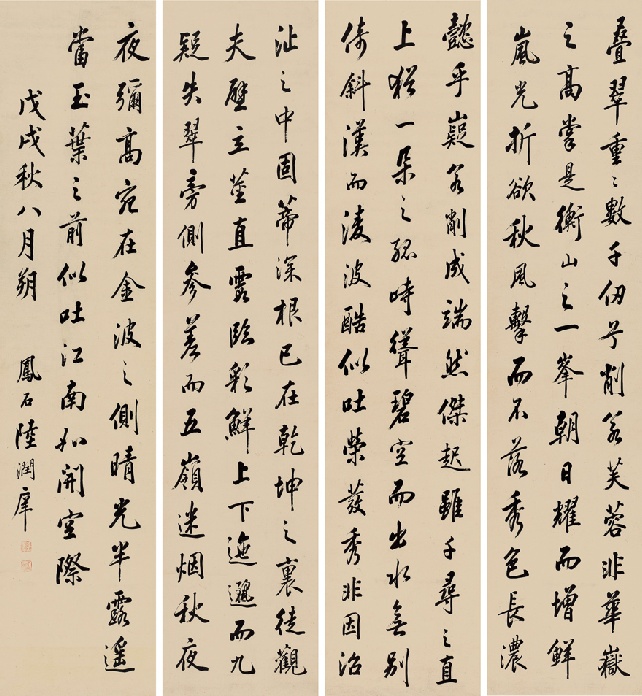 疊翠重々數千仞兮削若芙蓉非華嶽
之高掌是衡山之一峯朝日耀而增鮮
嵐光折欲秋風擊而不落秀色長濃
懿乎嶷若削成端然傑起雖千尋之直
上猶一朵之孤峙聳碧空而出水無別
倚斜漢而淩波酷似吐榮發秀非因沼
沚之中固蒂深根已在乾坤之裏徒觀
夫壁立莖直露臨彩鮮上下迤邐而九
疑失翠旁側參差而五嶺迷烟秋夜
夜彌高宛在金波之側晴光半露遥
當玉葉之前似吐江南如開室際
戊戌秋八月朔 鳳石陸潤庠